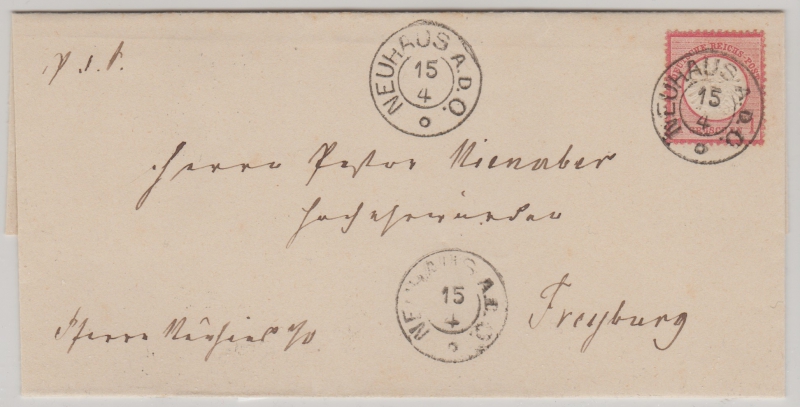 p. s. t.
NEUHAUS A.D.O.
15
4
DEUTSCHE REICHS-POST
1
NEUHAUS A.D.O.
15
4
Herrn Pastor Nienaber
Hochehrwürden
NEUHAUS A.D.O.
15
4
Freyburg